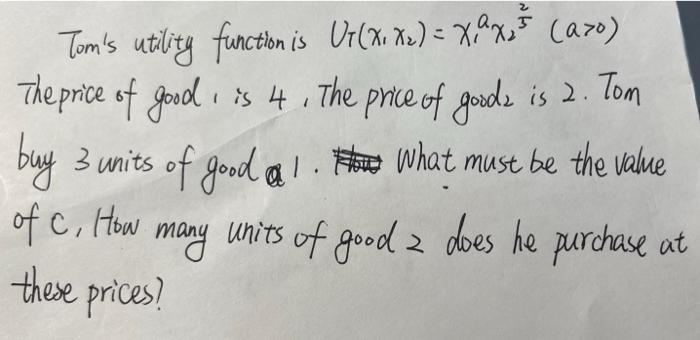 Tom's utility function is U_T(x₁ x₂) = x₁^a x₂^(2/5) (a>0)
The price of good 1 is 4, The price of good 2 is 2. Tom
buy 3 units of good 1. What must be the value
of c, How many units of good 2 does he purchase at
these prices?